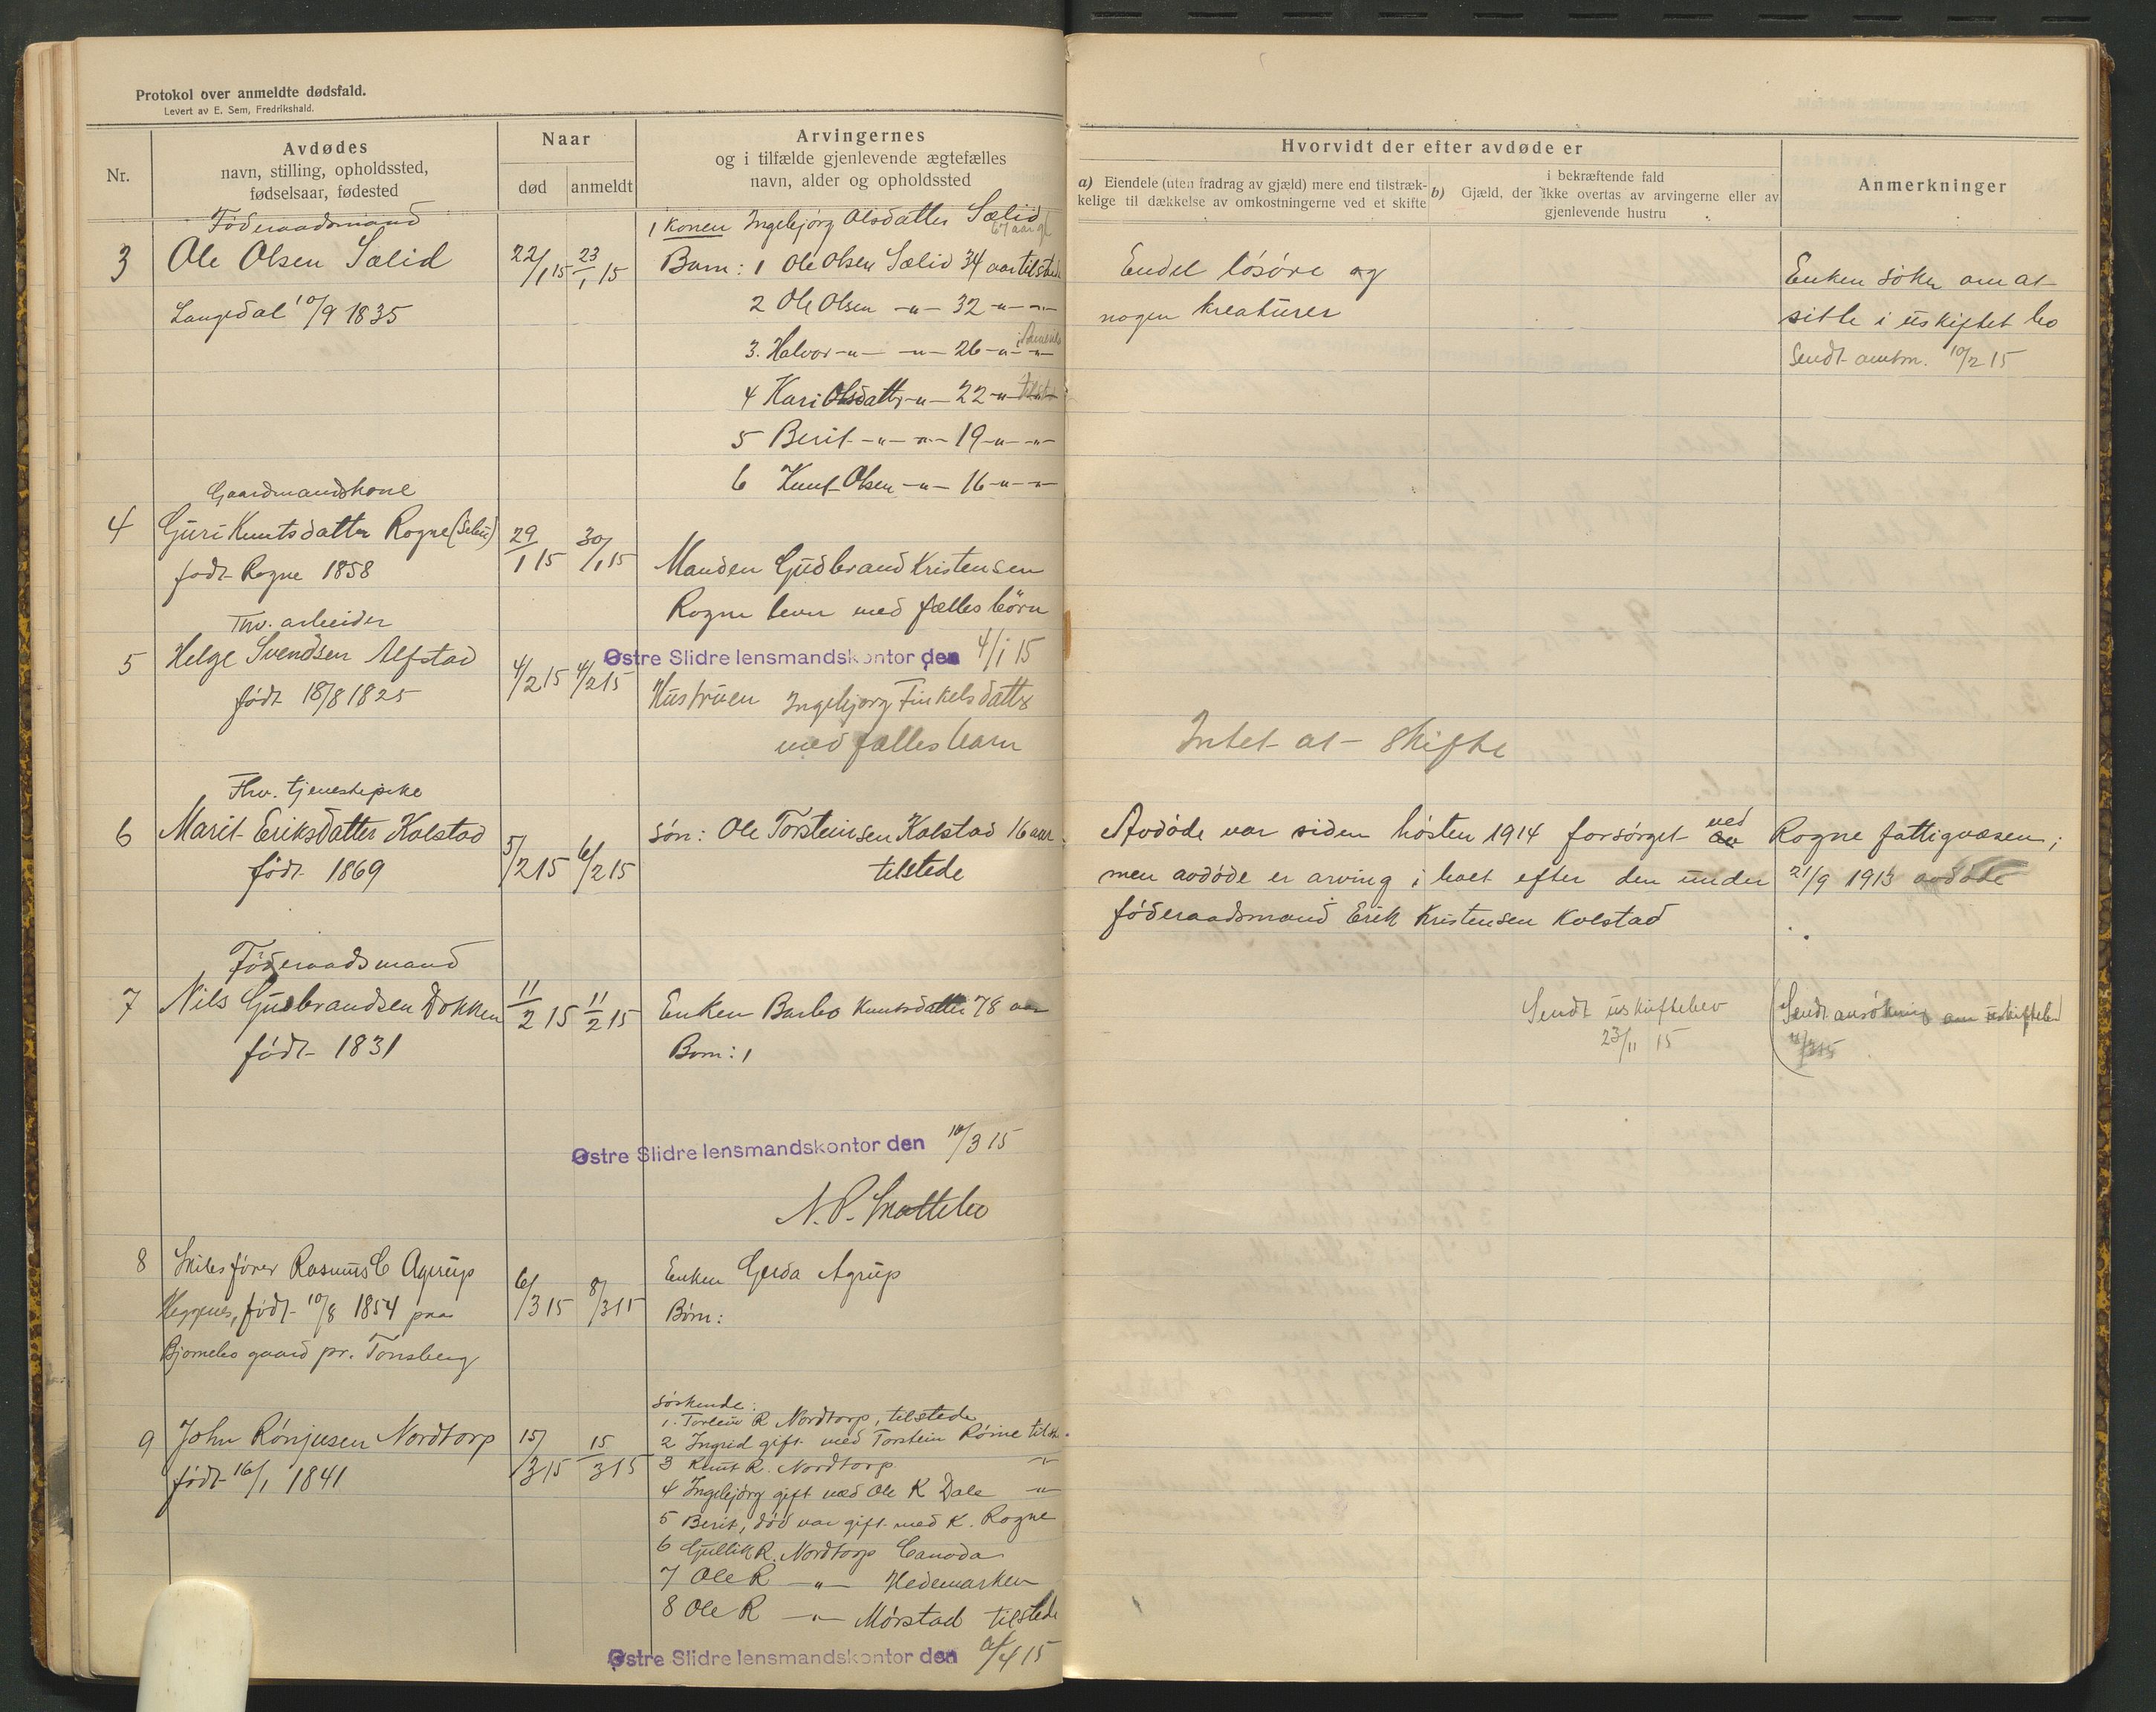 Protokol over anmeldte dødsfald.
Levert av E. Sem, Fredrikshald.
Nr.
Avdødes
navn, stilling, opholdssted,
fødselsaar, fødested
Naar
død
anmeldt
Arvingernes
og i tilfælde gjenlevende ægtefælles
navn, alder og opholdssted
Hvorvidt der efter avdøde er
a) Eiendele (uten fradrag av gjæld) mere end tilstræk-
kelige til dækkelse av omkostningerne ved et skifte
i bekræftende fald
b) Gjæld, der ikke overtas av arvingerne eller av
gjenlevende hustru
Anmerkninger
Föderaadsmand
3 Ole Olsen Sælid 22/1 15 23/1 15
Langedal 10/9 1835
1 Konen Ingebjörg Olsdatter Sælid
67 aar gl
Barn: 1 Ole Olsen Sælid 34 aar tilstede
2 Ole Olsen -"- 32 -"- -"-
3. Halvor -"- -"- 26 -"- -"-
4 Kari Olsdatter -"- 22 -"- -"-
5 Berit -"- -"- 19 -"- -"-
6 Knut Olsen -"- 16 -"- -"-
Endel lösöre og
nogen kreaturer
Enken söker om at
sitte i uskiftet bo
Sendt amtm. 10/2 15
Gaardmandskone
4 Guri Knutsdatter Rogne 29/1 15 30/1 15
födt Rogne 1858
Manden Gudbrand Kristensen
Rogne lever med fælles börn
Thv. arbeider
5 Helge Svendsen Alfstad 4/2 15 4/2 15
födt 18/8 1825
Østre Slidre lensmandskontor den 4/1 15
Hustruen Ingebjörg Finkelsdatter
med fælles barn
Intet at skifte
Fhv. tjenestepike
6 Marit Eriksdatter Kolstad 5/2 15 6/2 15
födt 1869
sön: Ole Torsteinsen Kolstad 16 aar
tilstede
Avdöde var siden hösten 1914 forsörget av ved Rogne fattigvæsen;
men avdöde er arving i boet efter den under 21/9 1913 avdöde
föderaadsmand Erik Kristensen Kolstad
Föderaadsmand
7 Nils Gudbrandsen Dokken 11/2 15 11/2 15
födt 1831
Enken Barbo Knutsdatter 78 aar
Barn: 1
Sendt uskiftebev
23/11 15
Sendt ansökning om uskiftebev
Østre Slidre lensmandskontor den 10/3 15
8 Rasmus C Agerup 6/3 15 8/3 15
Heggenes, födt 10/8 1854 paa
Bjornebo gaard pr. Tonsberg
Enken Gerda Agrup
Börn:
9 John Rönjusen Nordtorp 15/3 15 15/3 15
födt 16/1 1841
Söskende:
1. Torlein R Nordtorp, tilstede
2 Ingrid gift med Torstein Röine tilst.
3 Knut R. Nordtorp -"-
4 Ingebjörg gift med Ole K Dale -"-
5 Berit, död var gift med K. Rogne
6 Gullik R. Nordtorp Canada
7 Ole R -"- Hedemarken
8 Ole R -"- Mörstad tilstede
Østre Slidre lensmandskontor den